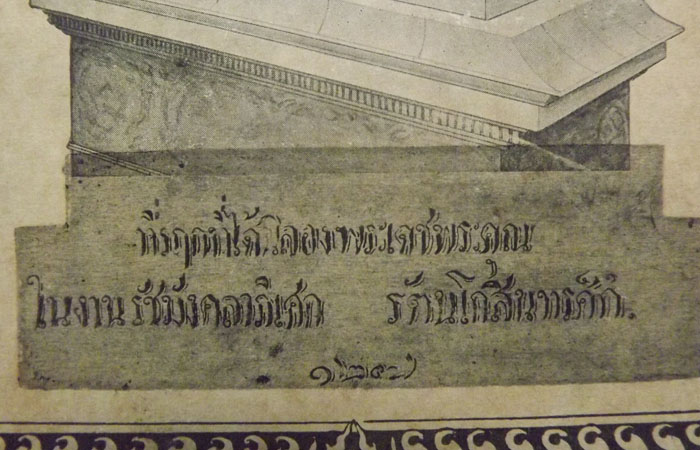 ที่รฤกที่ได้ฉลองพระเดชพระคุณ
ในงานรัชมังคลาภิเศก รัตนโกสินทรศก.